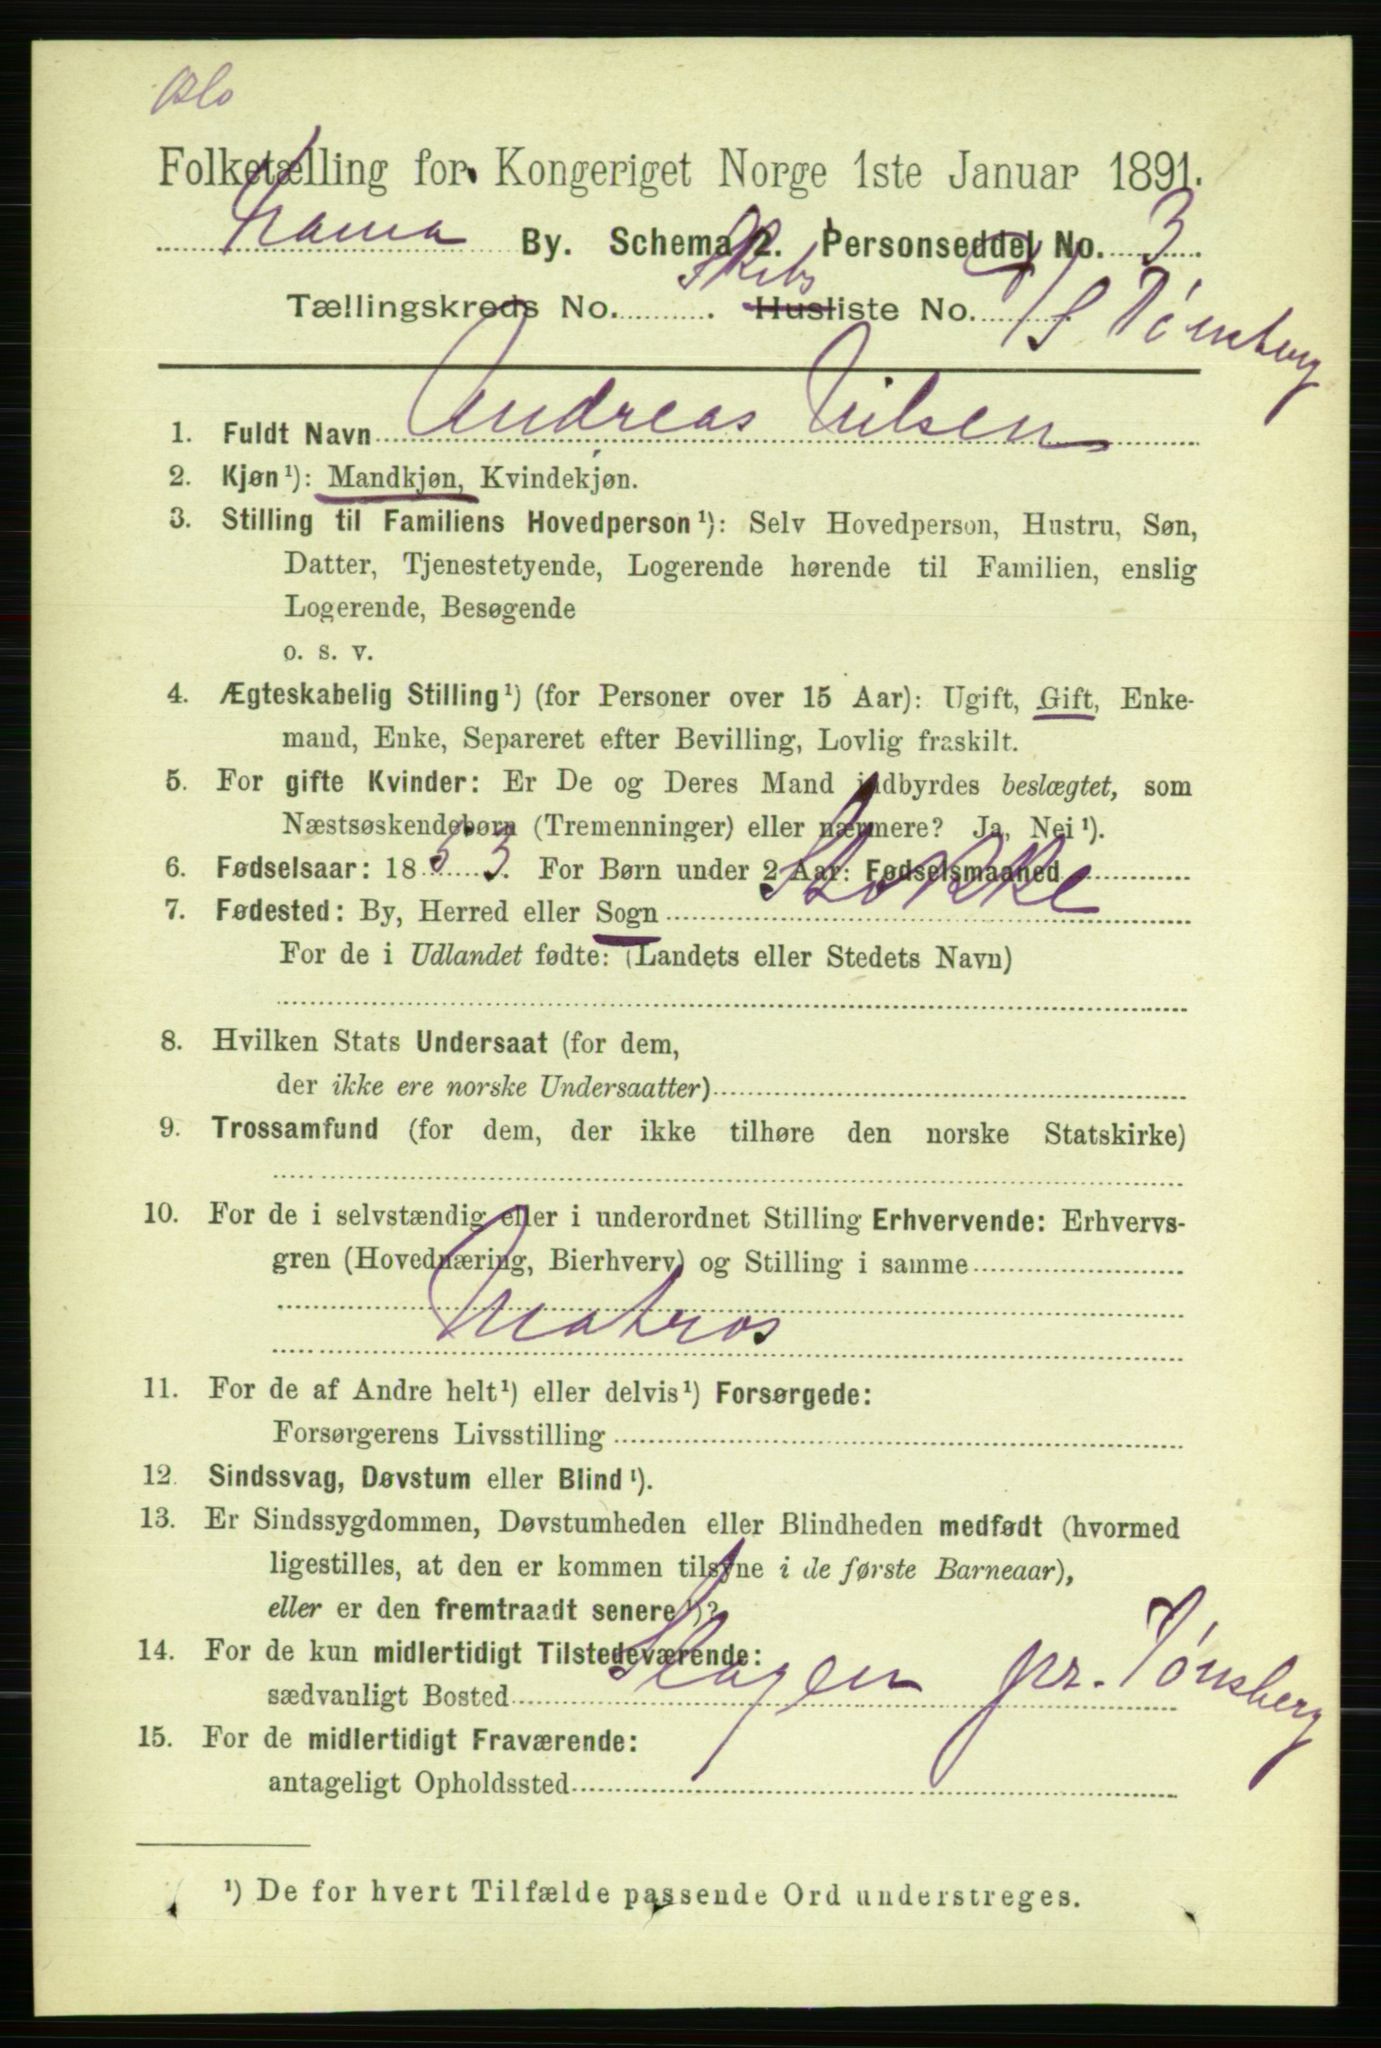 Oslo
Folketælling for Kongeriget Norge 1ste Januar 1891.
By. Schema 2. Personseddel No. 3
Tællingskreds No. . Skibs Husliste No. D/S Tønsberg
1. Fuldt Navn Andreas Nilsen
2. Kjøn¹): Mandkjøn, Kvindekjøn.
3. Stilling til Familiens Hovedperson¹): Selv Hovedperson, Hustru, Søn,
Datter, Tjenestetyende, Logerende hørende til Familien, enslig
Logerende, Besøgende
o. s. v.
4. Ægteskabelig Stilling¹) (for Personer over 15 Aar): Ugift, Gift, Enke-
mand, Enke, Separeret efter Bevilling, Lovlig fraskilt.
5. For gifte Kvinder: Er De og Deres Mand indbyrdes beslægtet, som
Næstsøskendebørn (Tremenninger) eller nærmere? Ja, Nei¹).
6. Fødselsaar: 1853. For Børn under 2 Aar: Fødselsmaaned
7. Fødested: By, Herred eller Sogn Stokke
For de i Udlandet fødte: (Landets eller Stedets Navn)
8. Hvilken Stats Undersaat (for dem,
der ikke ere norske Undersaatter)
9. Trossamfund (for dem, der ikke tilhøre den norske Statskirke)
10. For de i selvstændig eller i underordnet Stilling Erhvervende: Erhvervs-
gren (Hovednæring, Bierhverv) og Stilling i samme
Matros
11. For de af Andre helt¹) eller delvis¹) Forsørgede:
Forsørgerens Livsstilling
12. Sindssvag, Døvstum eller Blind¹).
13. Er Sindssygdommen, Døvstumheden eller Blindheden medfødt (hvormed
ligestilles, at den er kommen tilsyne i de første Barneaar),
eller er den fremtraadt senere¹)?
14. For de kun midlertidigt Tilstedeværende:
sædvanligt Bosted Slagen pr. Tønsberg
15. For de midlertidigt Fraværende:
antageligt Opholdssted
¹) De for hvert Tilfælde passende Ord understreges.